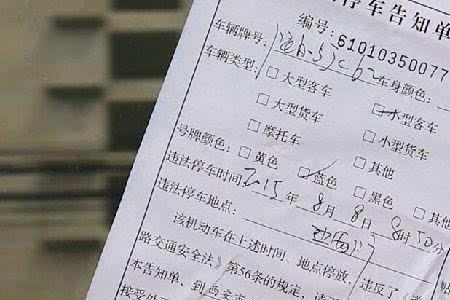 停车告知单
编号:61010350077
车辆牌号: 车身颜色:
车辆类型: □大型客车 小型客车
□大型货车 □小型货车
□摩托车 □其他
号牌颜色: □黄色 蓝色 □黑色 □其他
违法停车时间: 2015 年 8 月 8 日 8 时 50 分
违法停车地点:
该机动车在上述时间、地点停放,
路交通安全法》第56条的规定, 违反了《
本告知单, 到西安市
接受处